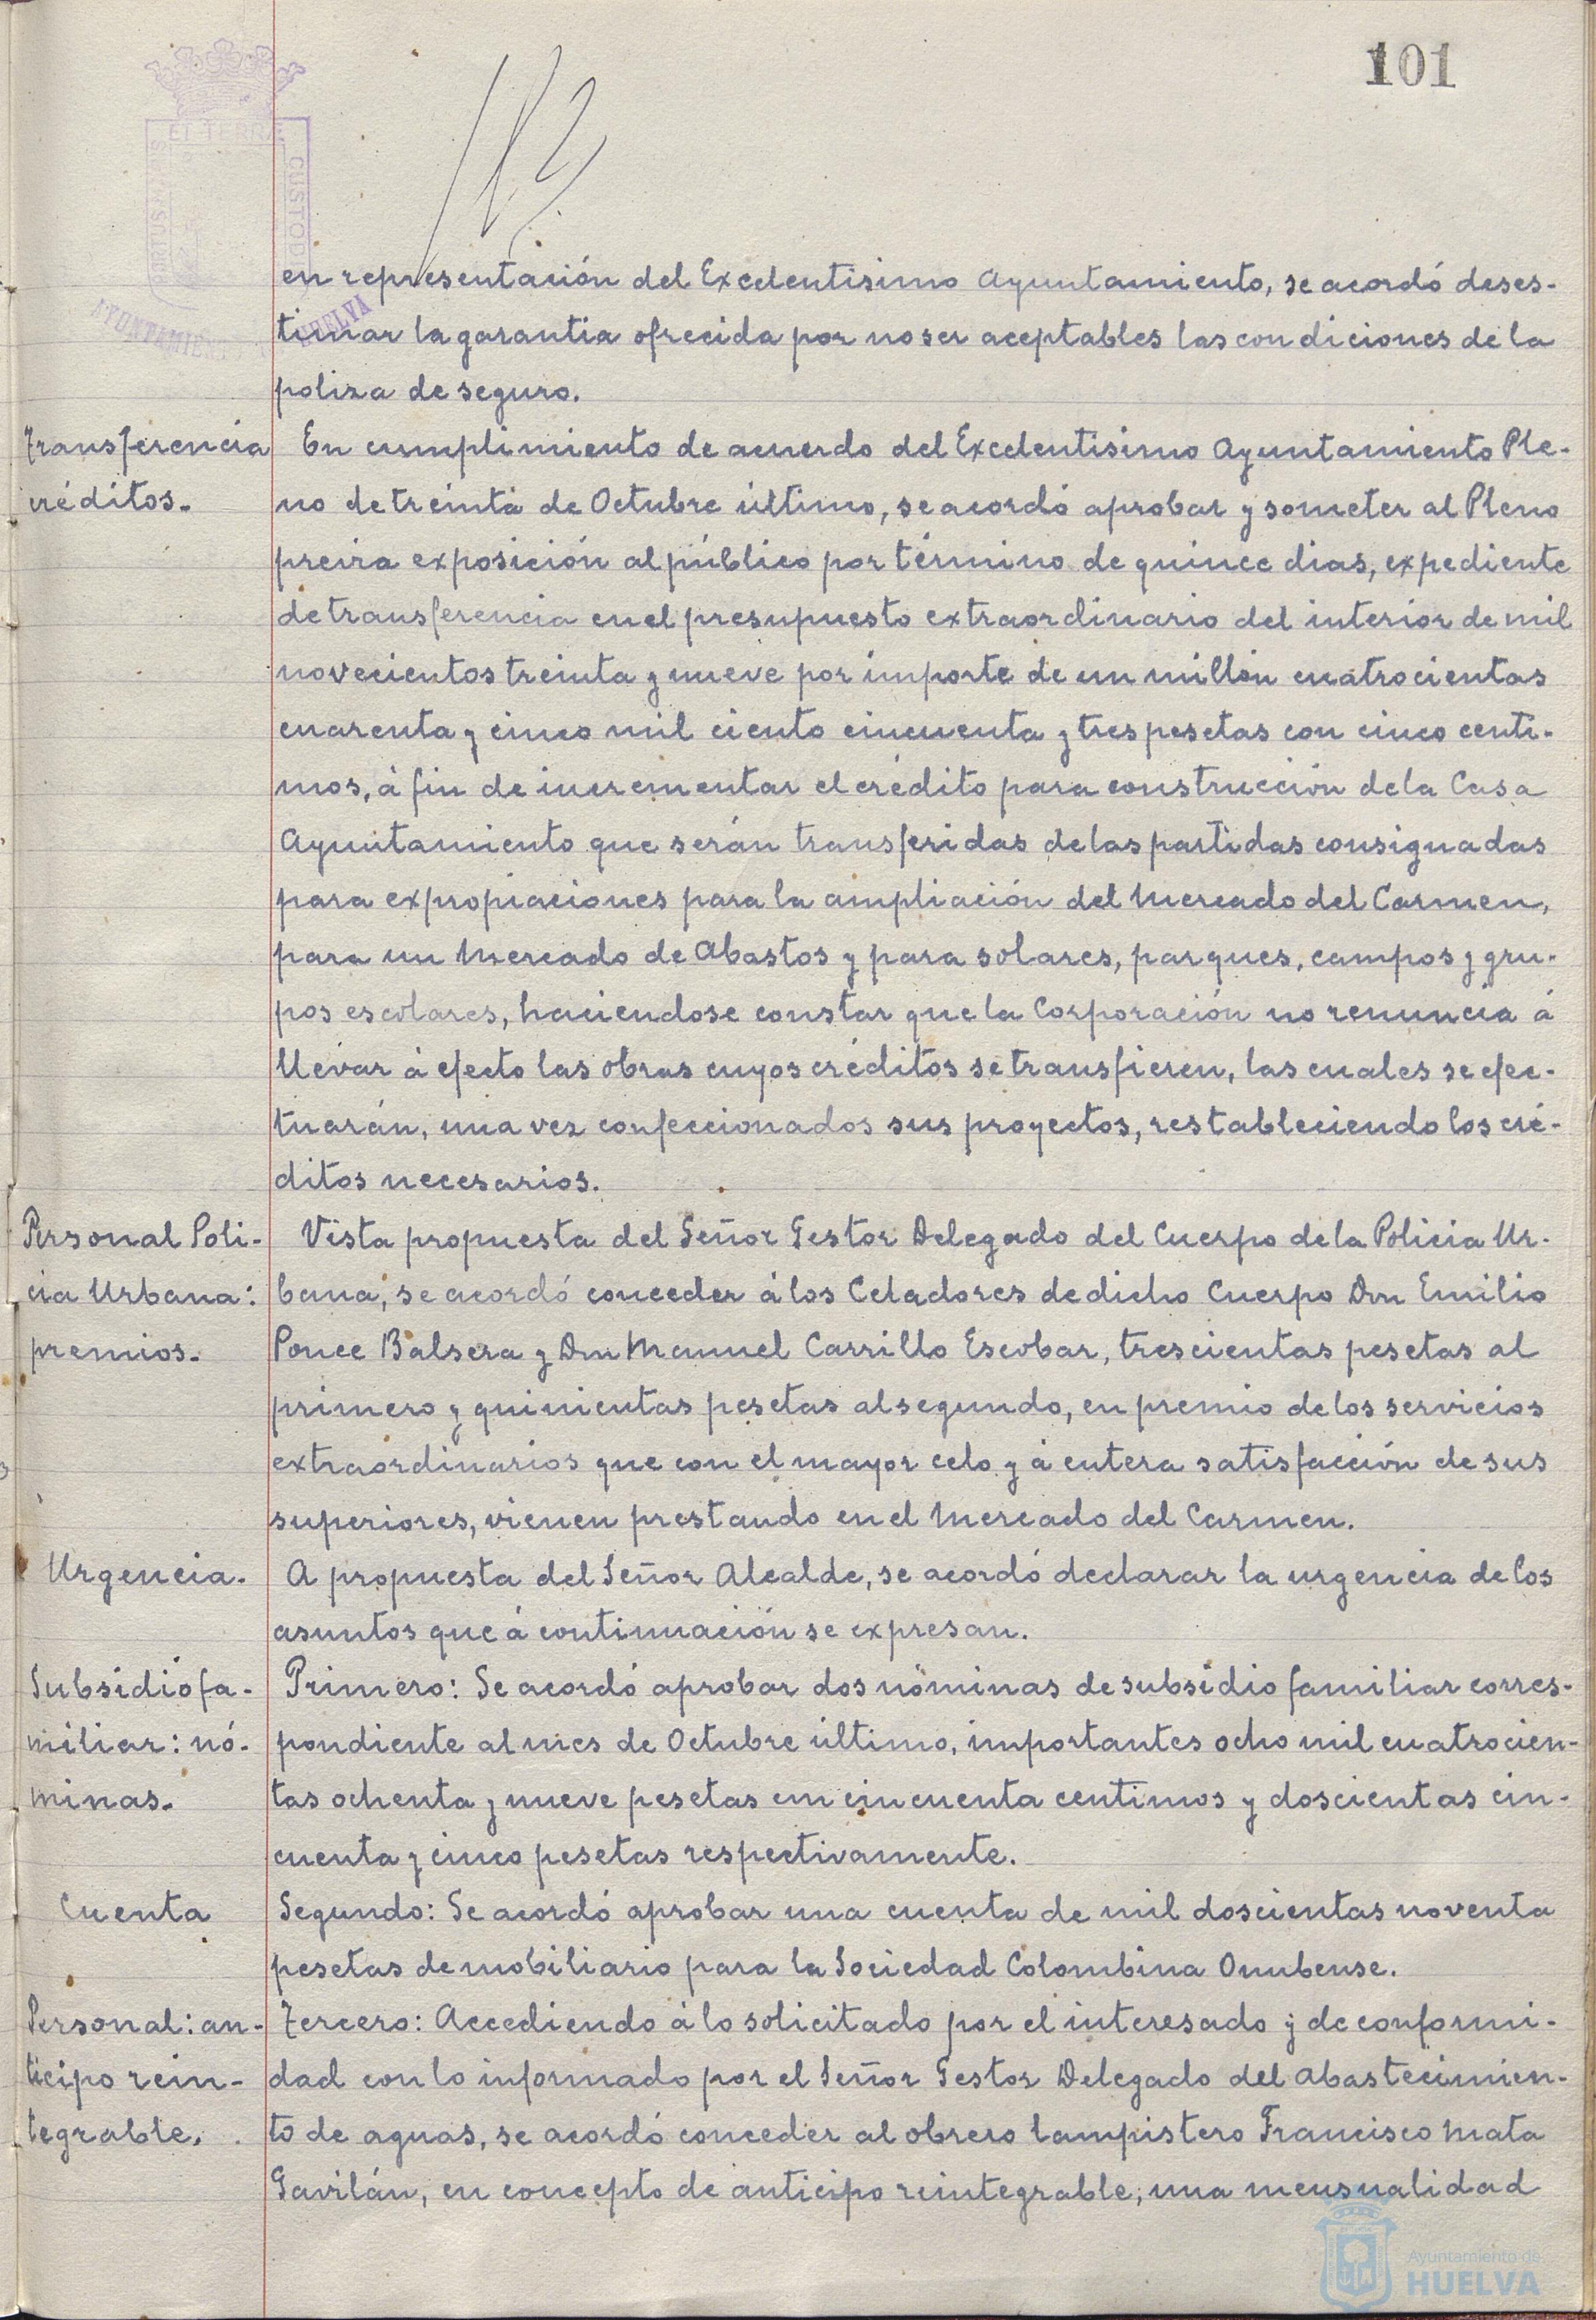 101
ET TERRÆ
CUSTODI
AYUNTAMIENTO HUELVA
en representación del Excelentisimo Ayuntamiento, se acordó deses-
timar la garantia ofrecida por no ser aceptables las condiciones de la
poliza de seguro.
Transferencia
créditos.
En cumplimiento de acuerdo del Excelentisimo Ayuntamiento Ple-
no de treinta de Octubre último, se acordó aprobar y someter al Pleno
previa exposición al público por término de quince dias, expediente
de transferencia en el presupuesto extraordinario del interior de mil
novecientos treinta y nueve por importe de un millón cuatrocientas
cuarenta y cinco mil ciento cincuenta y tres pesetas con cinco centi-
mos, á fin de incrementar el crédito para construcción de la Casa
Ayuntamiento que serán transferidas de las partidas consignadas
para expropiaciones para la ampliación del Mercado del Carmen,
para un Mercado de Abastos y para solares, parques, campos y gru-
pos escolares, haciendose constar que la Corporación no renuncia á
llevar á efecto las obras cuyos créditos se transfieren, las cuales se efec-
tuarán, una vez confeccionados sus proyectos, restableciendo los cré-
ditos necesarios.
Personal Poli-
cia Urbana:
premios.
Vista propuesta del Señor Gestor Delegado del Cuerpo de la Policia Ur-
bana, se acordó conceder á los Celadores de dicho Cuerpo Don Emilio
Ponce Balsera y Don Manuel Carrillo Escobar, trescientas pesetas al
primero y quinientas pesetas al segundo, en premio de los servicios
extraordinarios que con el mayor celo y á entera satisfacción de sus
superiores, vienen prestando en el Mercado del Carmen.
Urgencia.
A propuesta del Señor Alcalde, se acordó declarar la urgencia de los
asuntos que á continuación se expresan.
Subsidio fa-
miliar: nó-
minas.
Primero: Se acordó aprobar dos nóminas de subsidio familiar corres-
pondiente al mes de Octubre último, importantes ocho mil cuatrocien-
tas ochenta y nueve pesetas con cincuenta centimos y doscientas cin-
cuenta y cinco pesetas respectivamente.
Cuenta
Segundo: Se acordó aprobar una cuenta de mil doscientas noventa
pesetas de mobiliario para la Sociedad Colombina Onubense.
Personal: an-
ticipo rein-
tegrable.
Tercero: Accediendo á lo solicitado por el interesado y de conformi-
dad con lo informado por el Señor Gestor Delegado del Abastecimien-
to de aguas, se acordó conceder al obrero lampistero Francisco Mata
Gavilán, en concepto de anticipo reintegrable, una mensualidad
Ayuntamiento de
HUELVA